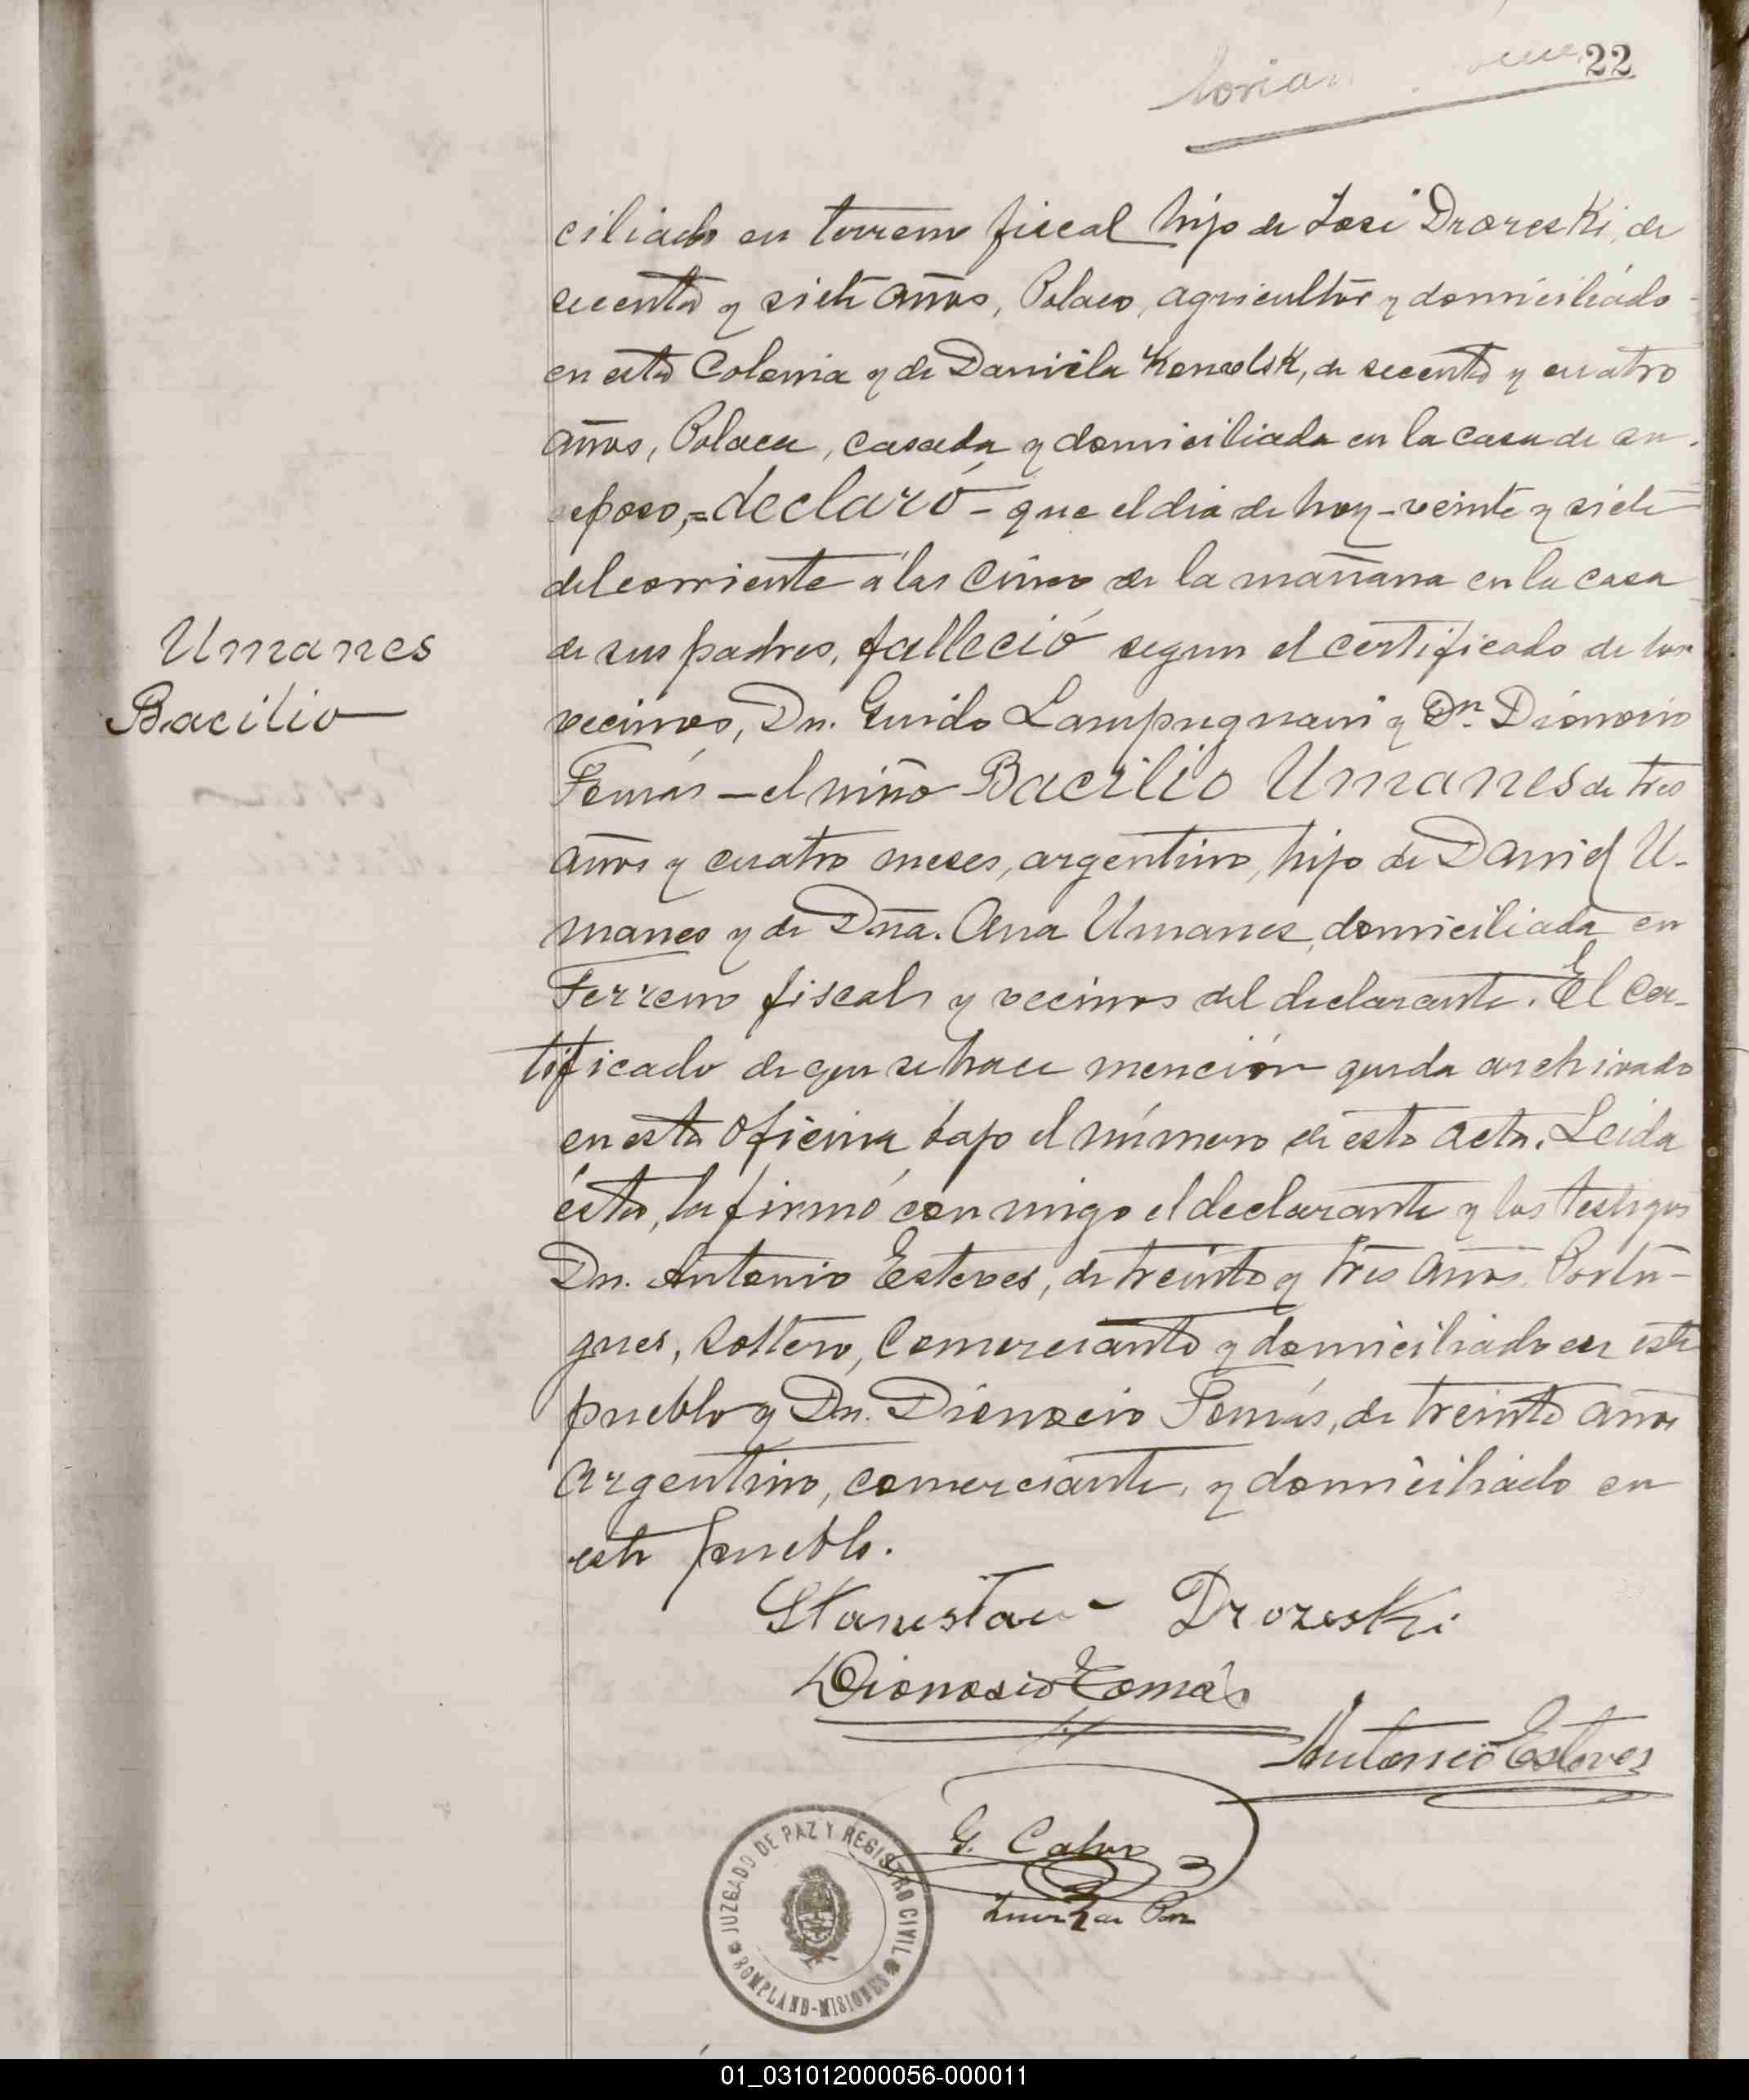 22
ciliado en terreno fiscal hijo de José Drozeski, de
secenta y siete años, Polaco, agricultor y domiciliado
en esta Colonia y de Daniela, de secenta y cuatro
años, Polaca, casada y domiciliada en la casa de su
esposo,= declaró - que el dia de hoy - veinte y siete
del corriente á las cinco de la mañana en la casa
de sus padres, falleció segun el certificado de los
Umanes
vecinos, Dn. Guido Lampugnani y Dn. Dionosio
Bacilio
Tomás - el niño Bacilio Umanes de tres
años y cuatro meses, argentino, hijo de Daniel U-
manes y de Dña. Ana Umanes, domiciliada en
Terreno fiscal y vecinos del declarante. El Cer-
tificado de que se hace mención queda archivado
en esta Oficina bajo el número de esta acta. Leida
ésta, la firmó con migo el declarante y los testigos
Dn. Antonio Esteves, de treinta y tres años, Portu-
gues, soltero, Comerciante y domiciliado en este
pueblo y Dn. Dionocio Tomás, de treinta años
Argentino, comerciante, y domiciliado en
este pueblo.
Stanislau - Drozeski
Dionosio Tomás
Antonio Esteves
G. Calvo
Juez de Paz
JUZGADO DE PAZ Y REGISTRO CIVIL
BOMPLAND-MISIONES
01_031012000056-000011